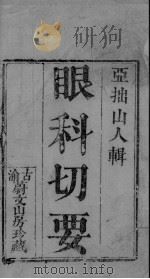 研狗
亞拙山人輯
眼科切要
古渝蔚文山房珍藏